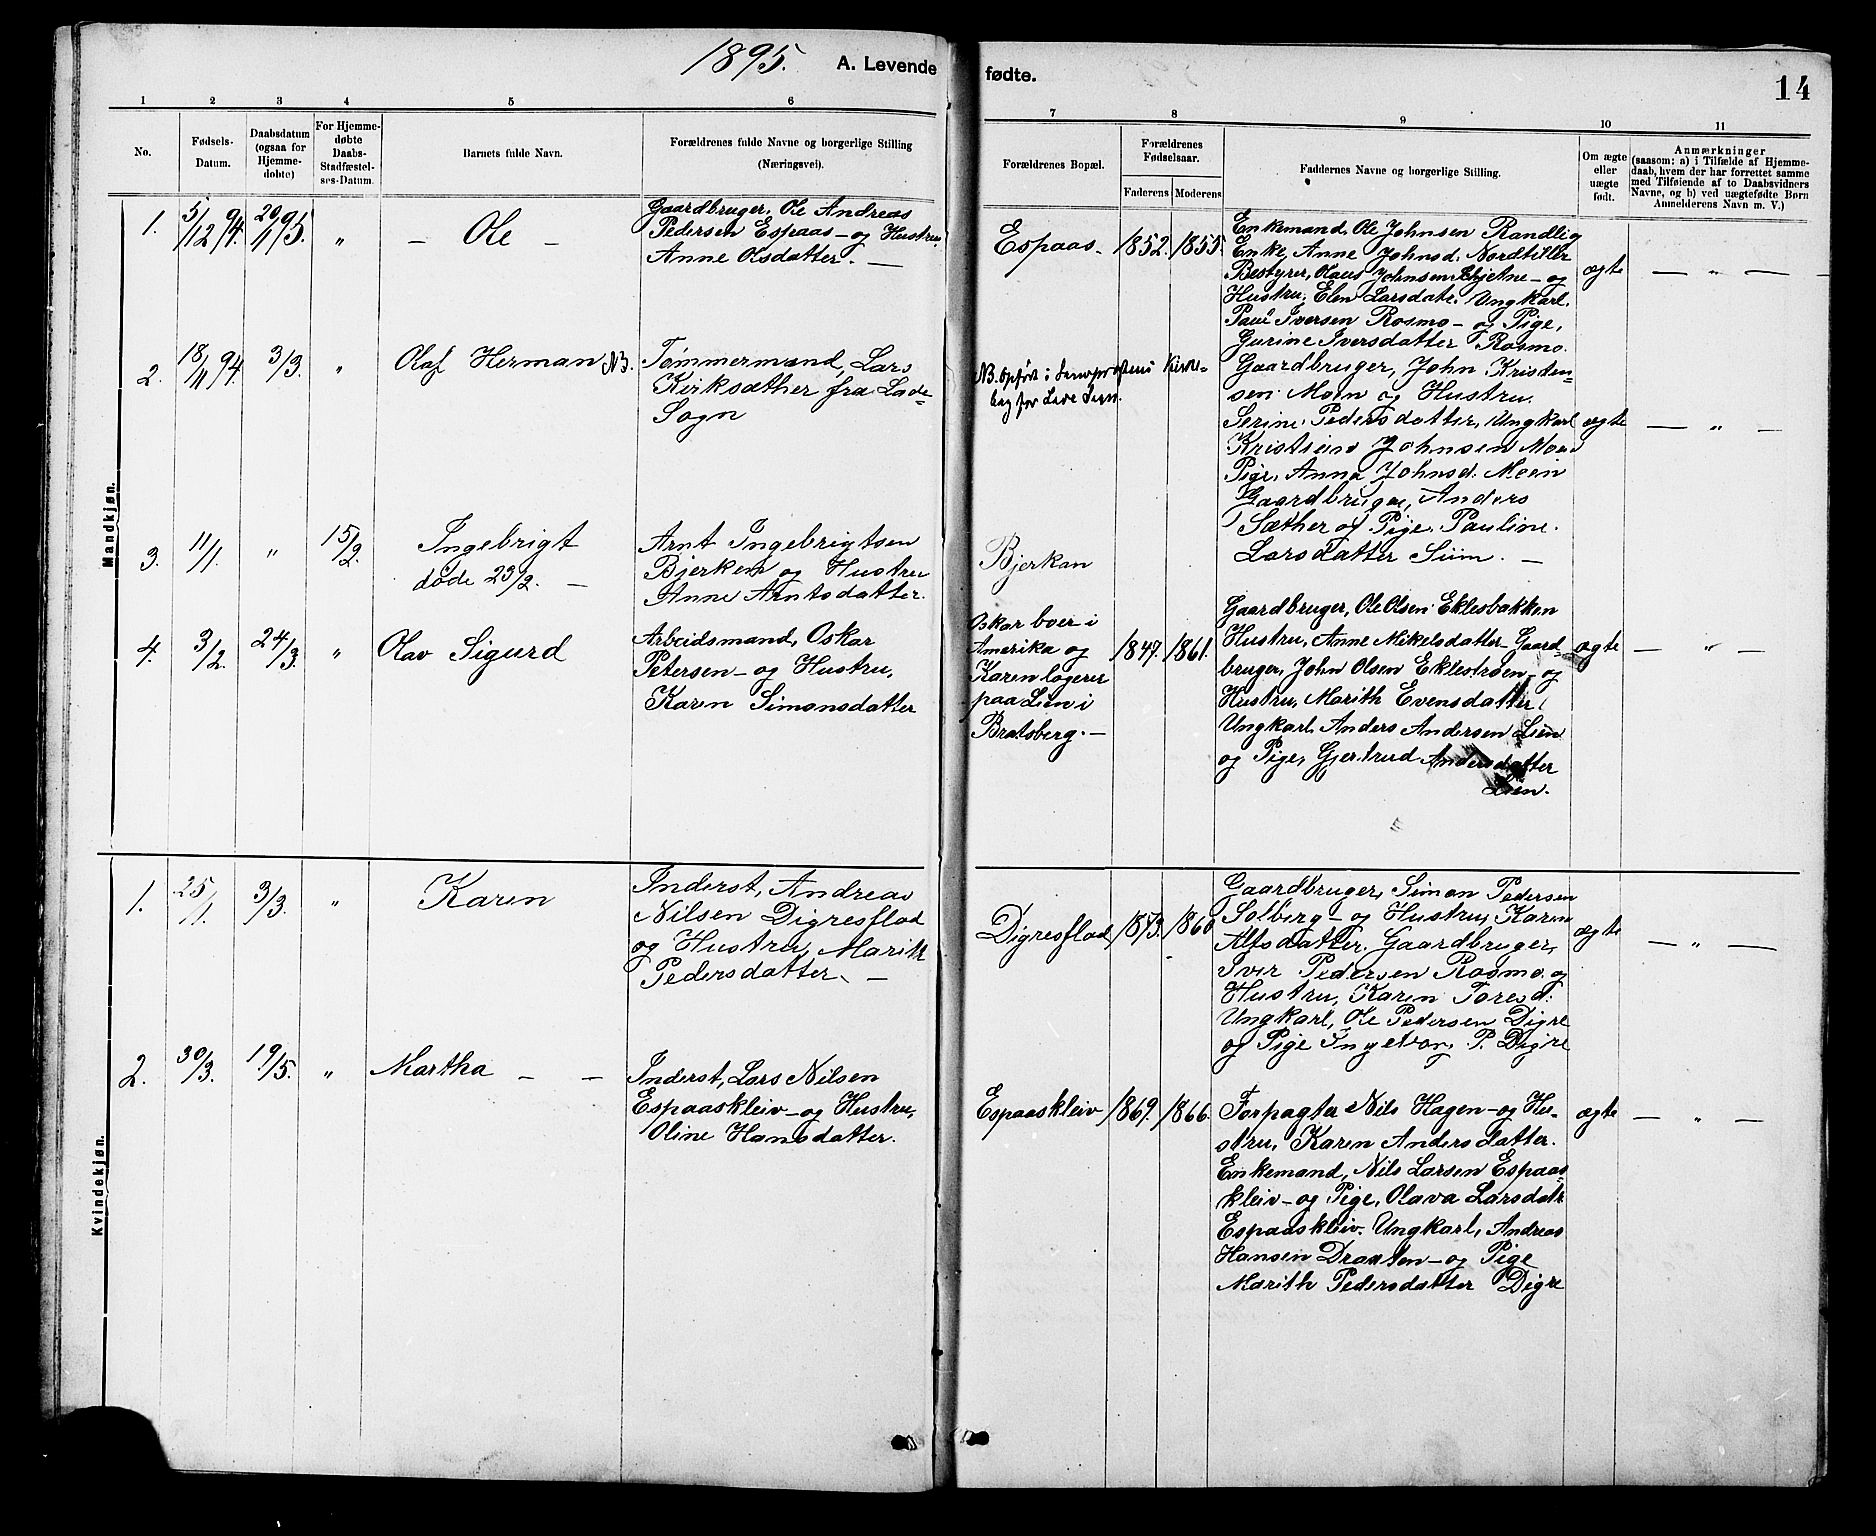 1895. A. Levende fødte. 14
1 2 3 4 5 6 7 8 9 10 11
No.
Fødsels-
Datum.
Daabsdatum
(ogsaa for
Hjemme-
døbte)
For Hjemme-
døbte
Daabs-
Stadfæstel-
ses-Datum.
Barnets fulde Navn.
Forældrenes fulde Navne og borgerlige Stilling
(Næringsvei).
Forældrenes Bopæl.
Forældrenes
Fødselsaar.
Faderens Moderens
Faddernes Navne og borgerlige Stilling.
Om ægte
eller
uægte
født.
Anmærkninger
(saasom: a) i Tilfælde af Hjemme-
daab, hvem der har forrettet samme
med Tilføiende af to Daabsvidners
Navne, og b) ved uægtefødte Børn
Anmelderens Navn m. V.)
Mandkjøn.
1. 5/12 94. 20/1 95. " – Ole –
Gaardbruger, Ole Andreas
Pedersen Espaas – og Hustru
Anne Olsdatter. –
Espaas. 1852. 1855.
Enkemand, Ole Johnsen Randlig
Enke, Anne Johnsd. Nordtiller
Bestyrer, Olaus Johnsen – og
Hustru, Elen Larsdatr. Ungkarl.
Paul Iversen Rosmo – og Pige,
Gurine Iversdatter Rosmo.
ægte — " — —
2. 18/11 94. 3/3. " Olaf Herman NB.
Tømmermand, Lars
Kirksæther fra Lade-
Sogn
NB. Opført i Kirke-
bog for Lade Sogn.
Gaardbruger, John Kristen-
sen Moen og Hustru
Serine Pedersdatter, Ungkarl
Johnsen Moen
Pige, Anna Johnsd. Moen
Gaardbruger, Anders
Sæther og Pige, Pauline
Larsdatter Siim. –
ægte — " —
3. 11/1. " 15/2. Ingebrigt
døde 23/2. —
Arnt Ingebrigtsen
Bjerken og Hustru
Anne Arntsdatter.
Bjerkan
4. 3/2. 24/3. " Olav Sigurd
Arbeidsmand, Oskar
Petersen – og Hustru,
Karen Simonsdatter
Oskar boer i
Amerika og
Karen logerer
paa Lien i
Bratsberg. –
1847. 1861.
Gaardbruger, Ole Olsen Eklesbakken
Hustru, Anne Mikelsdatter – Gaard-
bruger, John Olsen Eklestrøen – og
Hustru, Marith Evensdatter
Ungkarl, Anders Andersen Lien
og Pige, Gjertrud Andersdatter
Lien.
ægte — " —
Kvindekjøn.
1. 25/1. 3/3. " Karen
Inderst, Andreas
Nilsen Digresflad
og Hustru, Marith
Pedersdatter. –
Digresflad 1873. 1860
Gaardbruger, Simon Pedersen
Solberg – og Hustru, Karen
Alfsdatter. Gaardbruger,
Iver Pedersen Rosmo og
Hustru, Karen Toresd.
Ungkarl, Ole Pedersen Digre
og Pige Ingebor, P. Digre
ægte — " —
2. 30/3. 19/5. " Martha – –
Inderst, Lars Nilsen
Espaaskleiv – og Hustru,
Oline Hansdatter.
Espaaskleiv 1869. 1866.
Forpagter Nils Hagen – og Hu-
stru, Karen Andersdatter.
Enkemand, Nils Larsen Espaas-
kleiv – og Pige, Olava Larsdatr
Espaaskleiv. Ungkarl, Andreas
Hansen Draxten – og Pige
Marith Pedersdatter Digre
ægte — " —